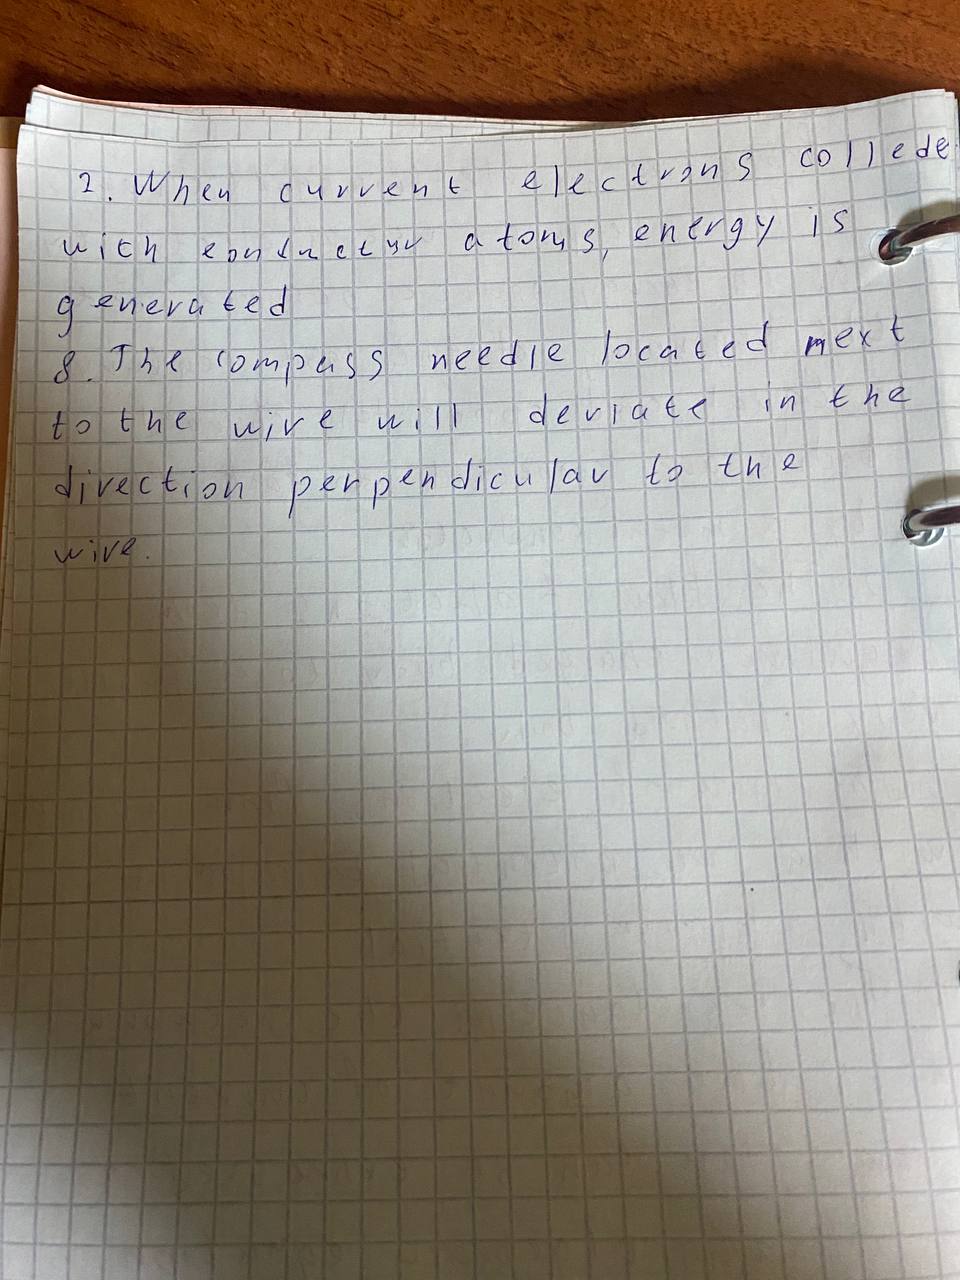 2. When current electrons collede
with conductor atoms, energy is
generated
8. The compass needle located mext
to the wire will deviate in the
direction perpendicular to the
wire.